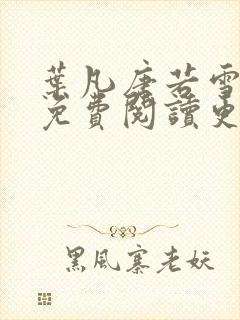 葉凡唐若雪
免費閱讀更
黑風寨老妖